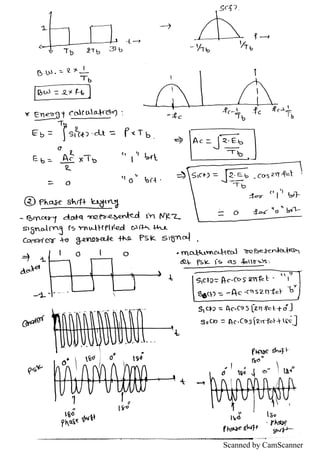 S(f)
1
Tb 2Tb 3Tb t
-1/Tb 1/Tb f
B.W. = 2 × 1/Tb
BW = 2 × fb
-fc fc-1/Tb fc fc+1/Tb
* Energy calculation:
Eb = ∫₀^Tb s₁²(t)·dt = P × Tb
Eb = Ac²/2 × Tb "1" bit
= 0 "0" bit.
⇒ Ac = √(2·Eb/Tb)
⇒ S₁(t) = √(2·Eb/Tb) . cos2πfct for "1" bit
= 0 for "0" bit
② Phase shift keying
- Binary data represented in NRZ
signaling is multiplied with the
carrier to generate the PSK signal.
⇒ 1 0 1 0
data 1
-1 t
• mathematical representation
of PSK is as follows.
S₁(t) = Ac·cos2πfct - "1"
S₀(t) = -Ac·cos2πfct "0"
S₁(t) = Ac·cos[2πfct+0°]
S₀(t) = Ac·cos[2πfct+180°]
Carrier t
Phase shift
180°
PSK 0° 180 0° 180 t
0° 180 0° 180
180° 180°
Phase shift
180 180
Phase shift Phase shift
Scanned by CamScanner